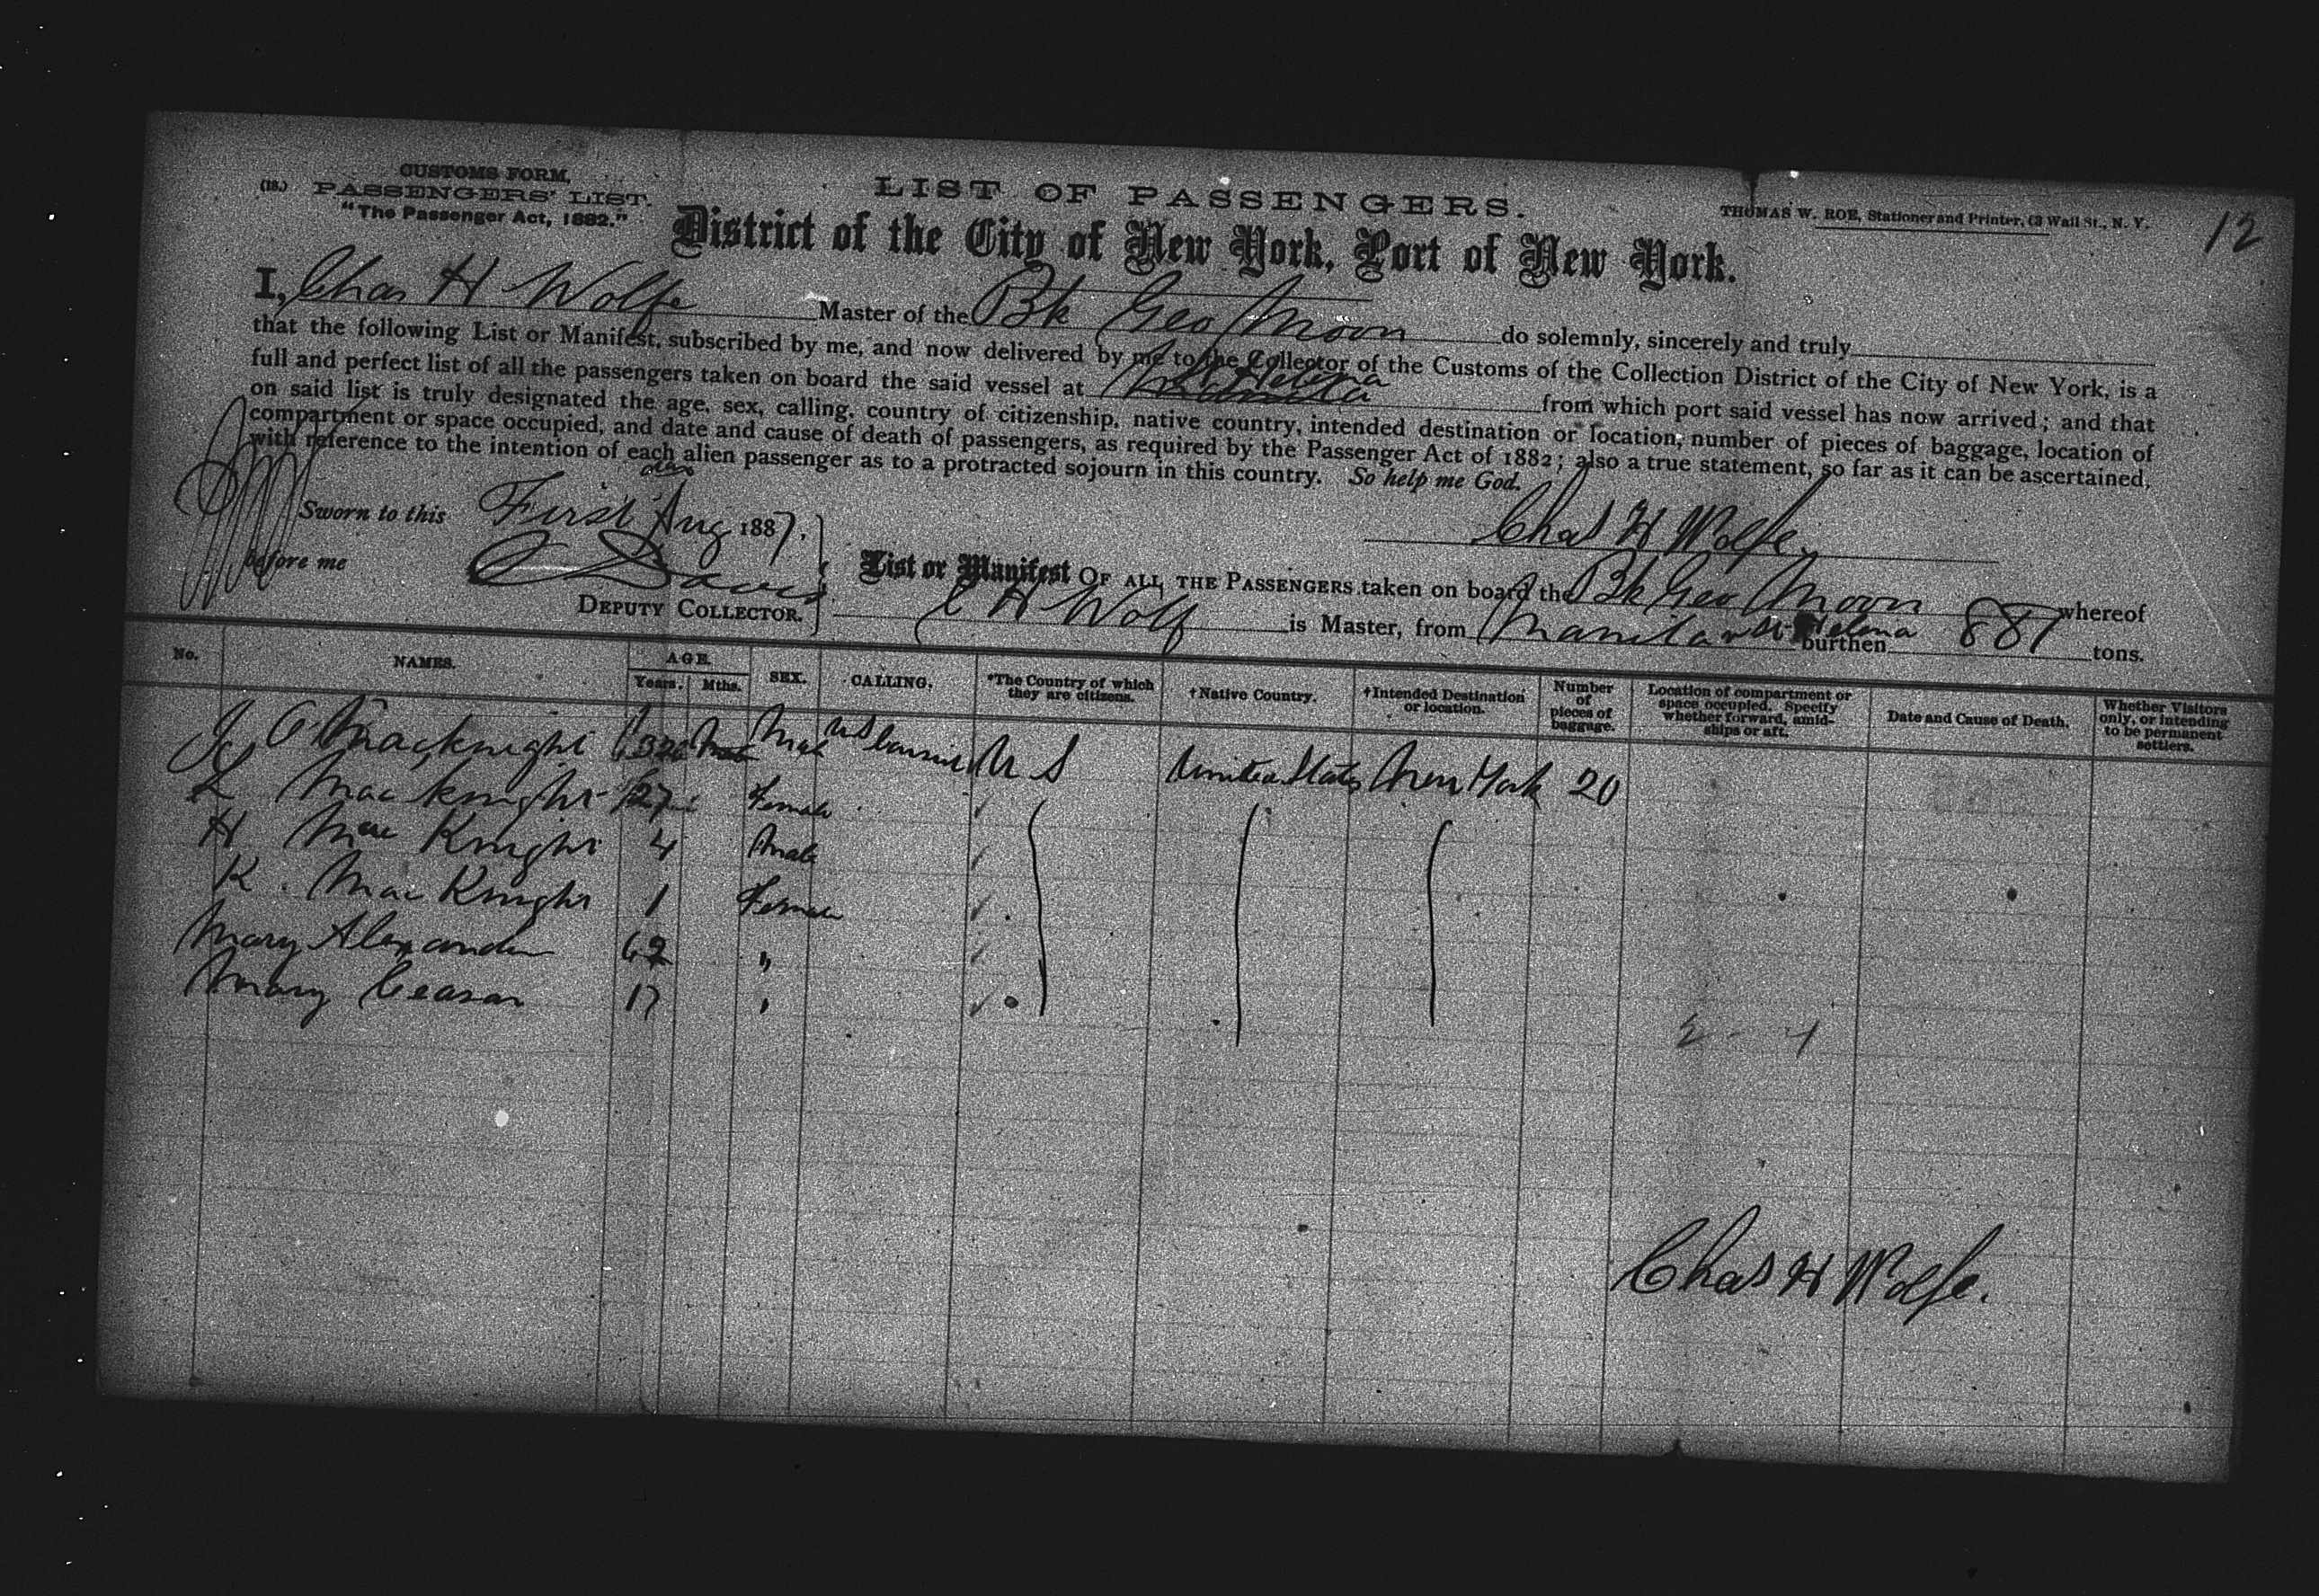 12
CUSTOMS FORM,
(18.) PASSENGERS' LIST.
"The Passenger Act, 1882."
LIST OF PASSENGERS.
THOMAS W. ROE, Stationer and Printer, 63 Wall St., N. Y.
District of the City of New York, Port of New York.
I, Chas H Wolfe Master of the Bk Geo Moon do solemnly, sincerely and truly
that the following List or Manifest, subscribed by me, and now delivered by me to the Collector of the Customs of the Collection District of the City of New York, is a
full and perfect list of all the passengers taken on board the said vessel at St Helena from which port said vessel has now arrived; and that
on said list is truly designated the age, sex, calling, country of citizenship, native country, intended destination or location, number of pieces of baggage, location of
compartment or space occupied, and date and cause of death of passengers, as required by the Passenger Act of 1882; also a true statement, so far as it can be ascertained,
with reference to the intention of each alien passenger as to a protracted sojourn in this country. So help me God.
Sworn to this First day Aug 1887.
Chas H Wolfe.
before me Davis
DEPUTY COLLECTOR.
List or Manifest OF ALL THE PASSENGERS taken on board the Bk Geo Moon whereof
C H Wolf is Master, from Manila St Helena burthen 887 tons.
No. NAMES. AGE. Years. Mths. SEX. CALLING. *The Country of which they are citizens. †Native Country. †Intended Destination or location. Number of pieces of baggage. Location of compartment or space occupied. Specify whether forward, amidships or aft. Date and Cause of Death. Whether Visitors only, or intending to be permanent settlers.
Macknight Male US U S United States New York 20
L Mac Knight 27 Female
H Mac Knight 4 Male
K. Mac Knight 1 Female
Mary Alexander 62 "
Mary Ceasar 17 "
Chas H Wolfe.